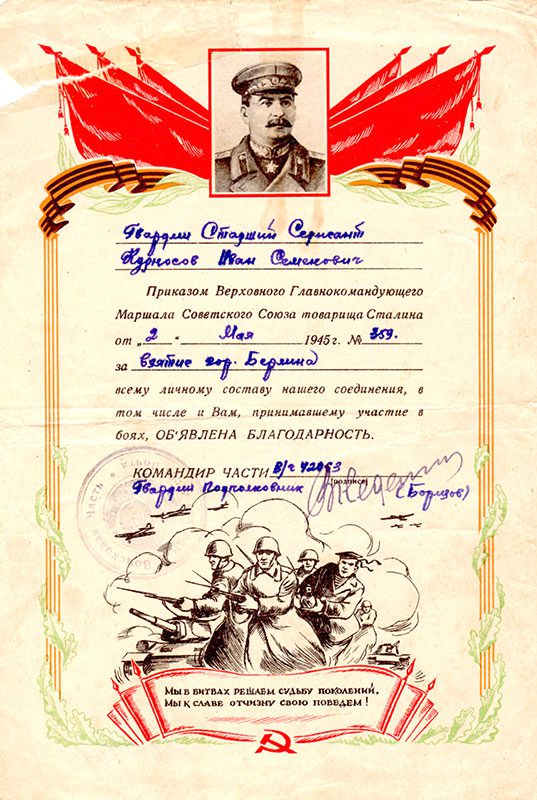 Гвардии Старший Сержант
Курносов Иван Семенович
Приказом Верховного Главнокомандующего
Маршала Советского Союза товарища Сталина
от „2" Мая 1945 г. № 359.
за взятие гор. Берлина
всему личному составу нашего соединения, в
том числе и Вам, принимавшему участие в
боях, ОБ'ЯВЛЕНА БЛАГОДАРНОСТЬ.
КОМАНДИР ЧАСТИ В/ч 42063
(подпись)
Гвардии Подполковник (Борисов)
Войсковая Часть
Мы в битвах решаем судьбу поколений,
Мы к славе отчизну свою поведем!